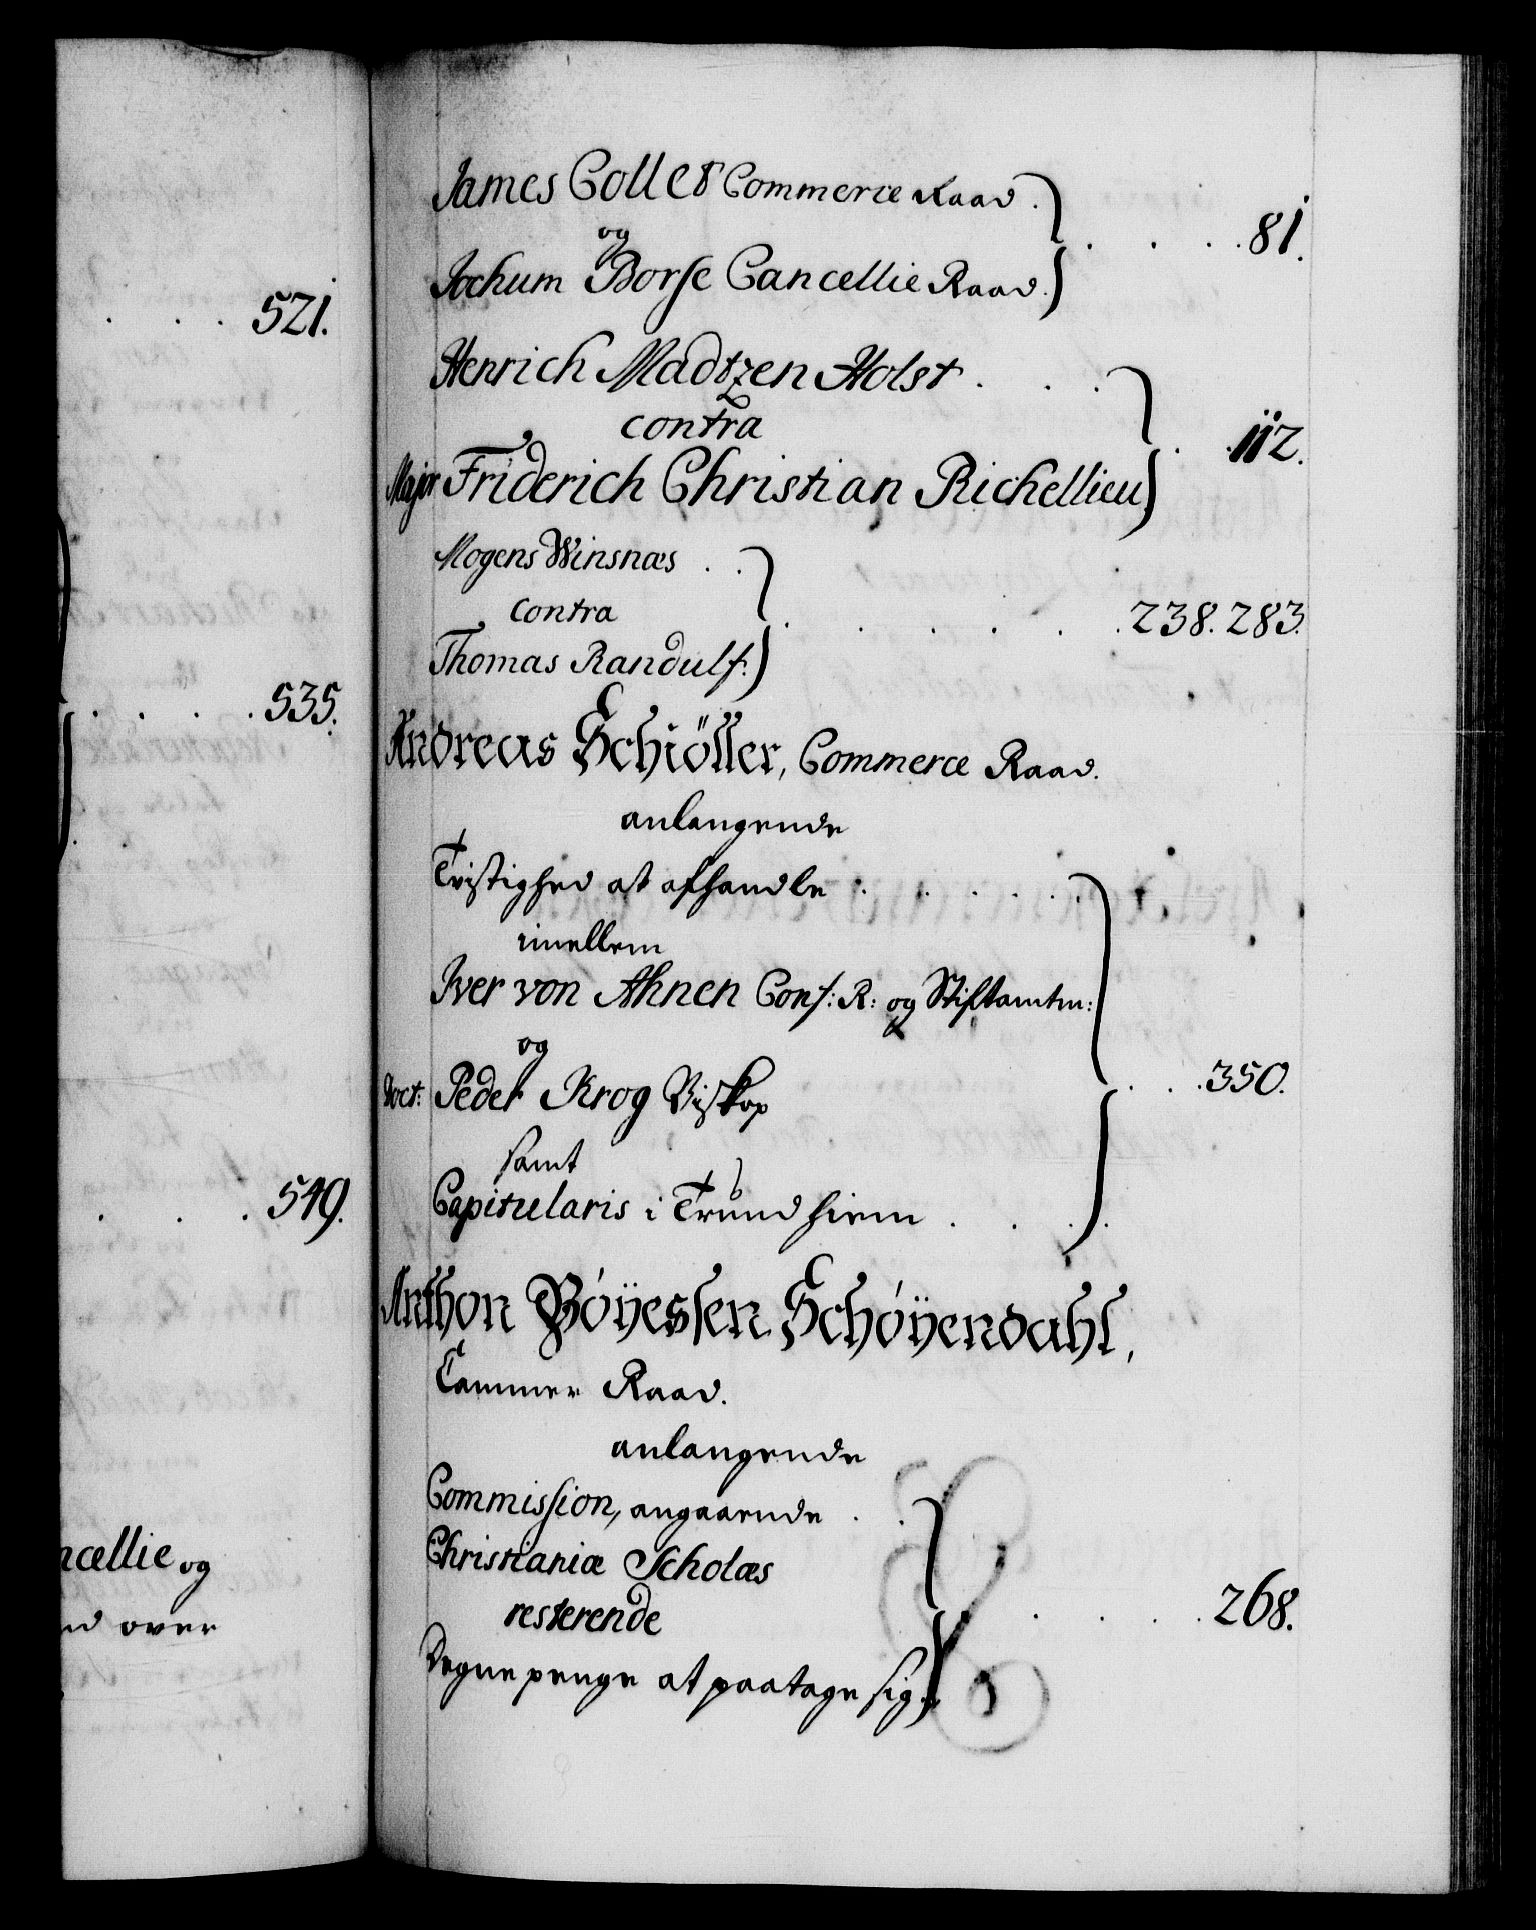 521.
535.
549.
ncellie og
nd over
James Collet Commerce Raad .
og
Jochum Borse Cancellie Raad. . . . . 81.
Henrich Madtzen Holst . . .
contra
Major Friderich Christian Richellieu . . 112.
Mogens Winsnæs . .
contra
Thomas Randulf. . . . . . . 238. 283.
Andreas Schiöller, Commerce Raad.
anlangende
Tvistighed at afhandle . . . . .
imellem
Iver von Ahnen Conf: R: og Stiftamtm:
og
Doct: Peder Krog Biskop . . . 350.
samt
Capitularis i Trundhiem . . . .
Anthon Böÿessen Schöÿendahl,
Cammer Raad.
anlangende
Commission, angaaende . .
Christianiæ Scholæs
resterende . . . . . 268.
Degnepenge at paatage sig.